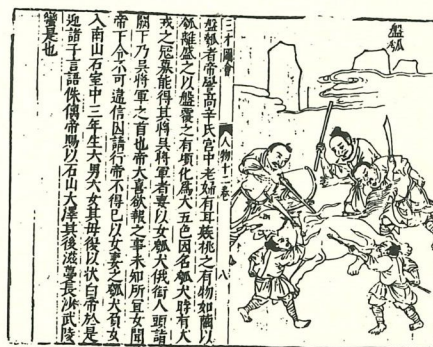 盤瓠
三才圖會
人物十二卷
八
盤瓠者帝嚳高辛氏宮中老婦有耳疾挑之有物如繭以
瓠離盛之以盤覆之有頃化爲犬五色因名瓠犬時有犬
戎之冦募能得其將吳將軍者妻以女瓠犬俄銜人頭詣
闕下乃吳將軍之首也帝大喜欲報之事未知所宜女聞
帝下令不可違信因請行帝不得已以女妻之瓠犬負女
入南山石室中三年生六男六女其母後以狀白帝於是
迎諸子言語侏㒧帝賜以石山大澤其後滋蔓長沙武陵
蠻是也